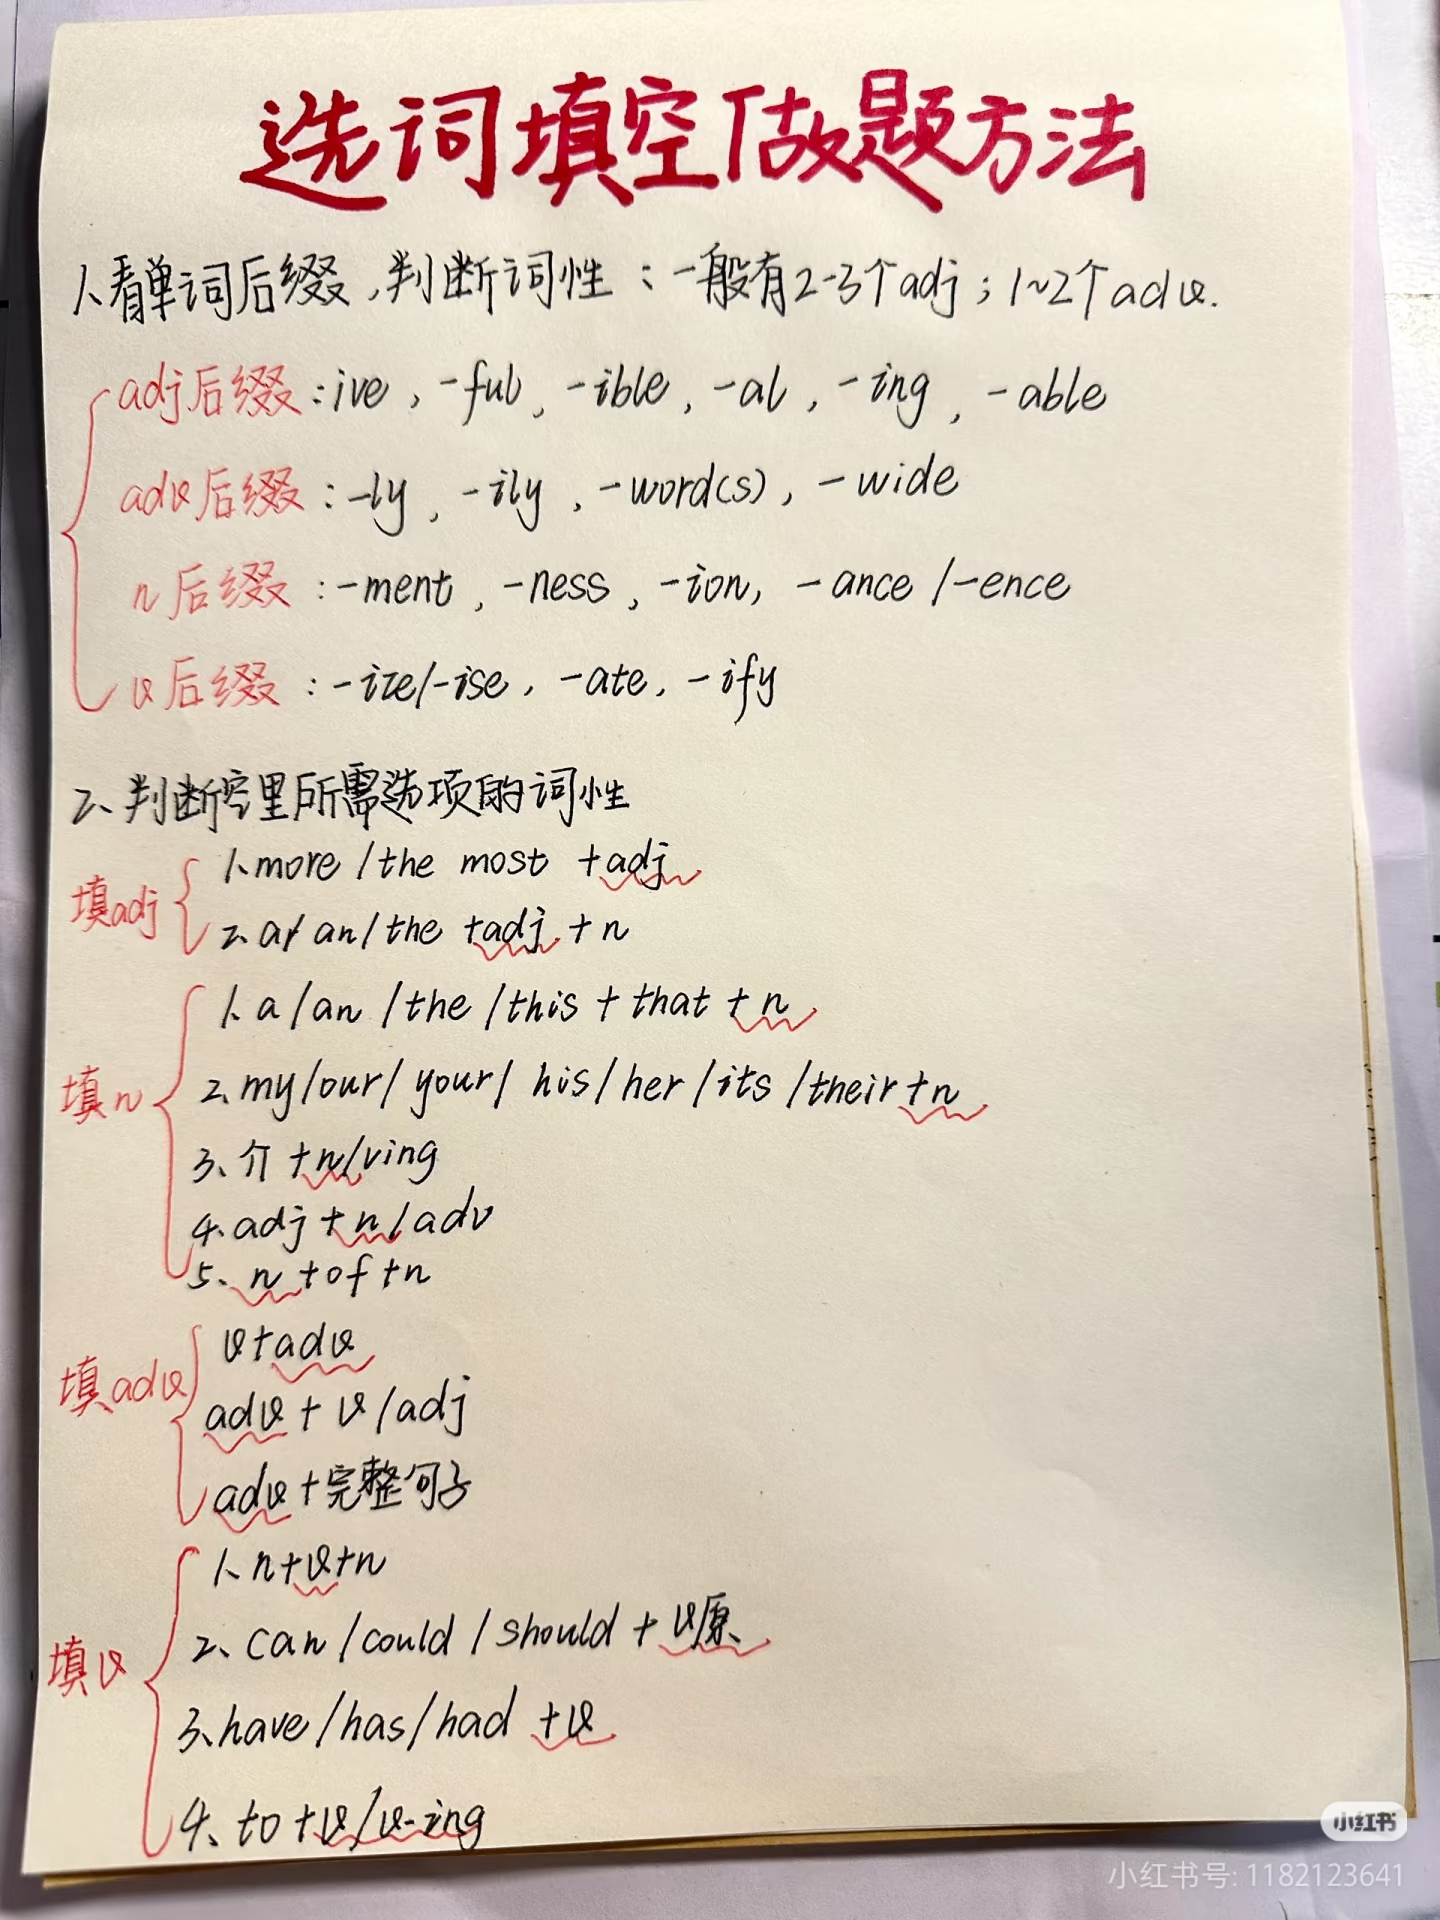 选词填空做题方法
1、看单词后缀,判断词性:一般有2-3个adj;1~2个adv.
adj后缀:ive,-ful,-ible,-al,-ing,-able
adv后缀:-ly,-ily,-word(s),-wide
n后缀:-ment,-ness,-ion,-ance/-ence
v后缀:-ize/-ise,-ate,-ify
2、判断空里所需选项的词性
填adj
1.more/the most +adj
2.a/an/the +adj+n
填n
1.a/an/the/this+that+n
2.my/our/your/his/her/its/their+n
3、介+n/ving
4.adj+n/adv
5、n+of+n
填adv
v+adv
adv+v/adj
adv+完整句子
填v
1、n+v+n
2、can/could/should+v原
3、have/has/had+v
4、to+v/v-ing
小红书
小红书号:1182123641